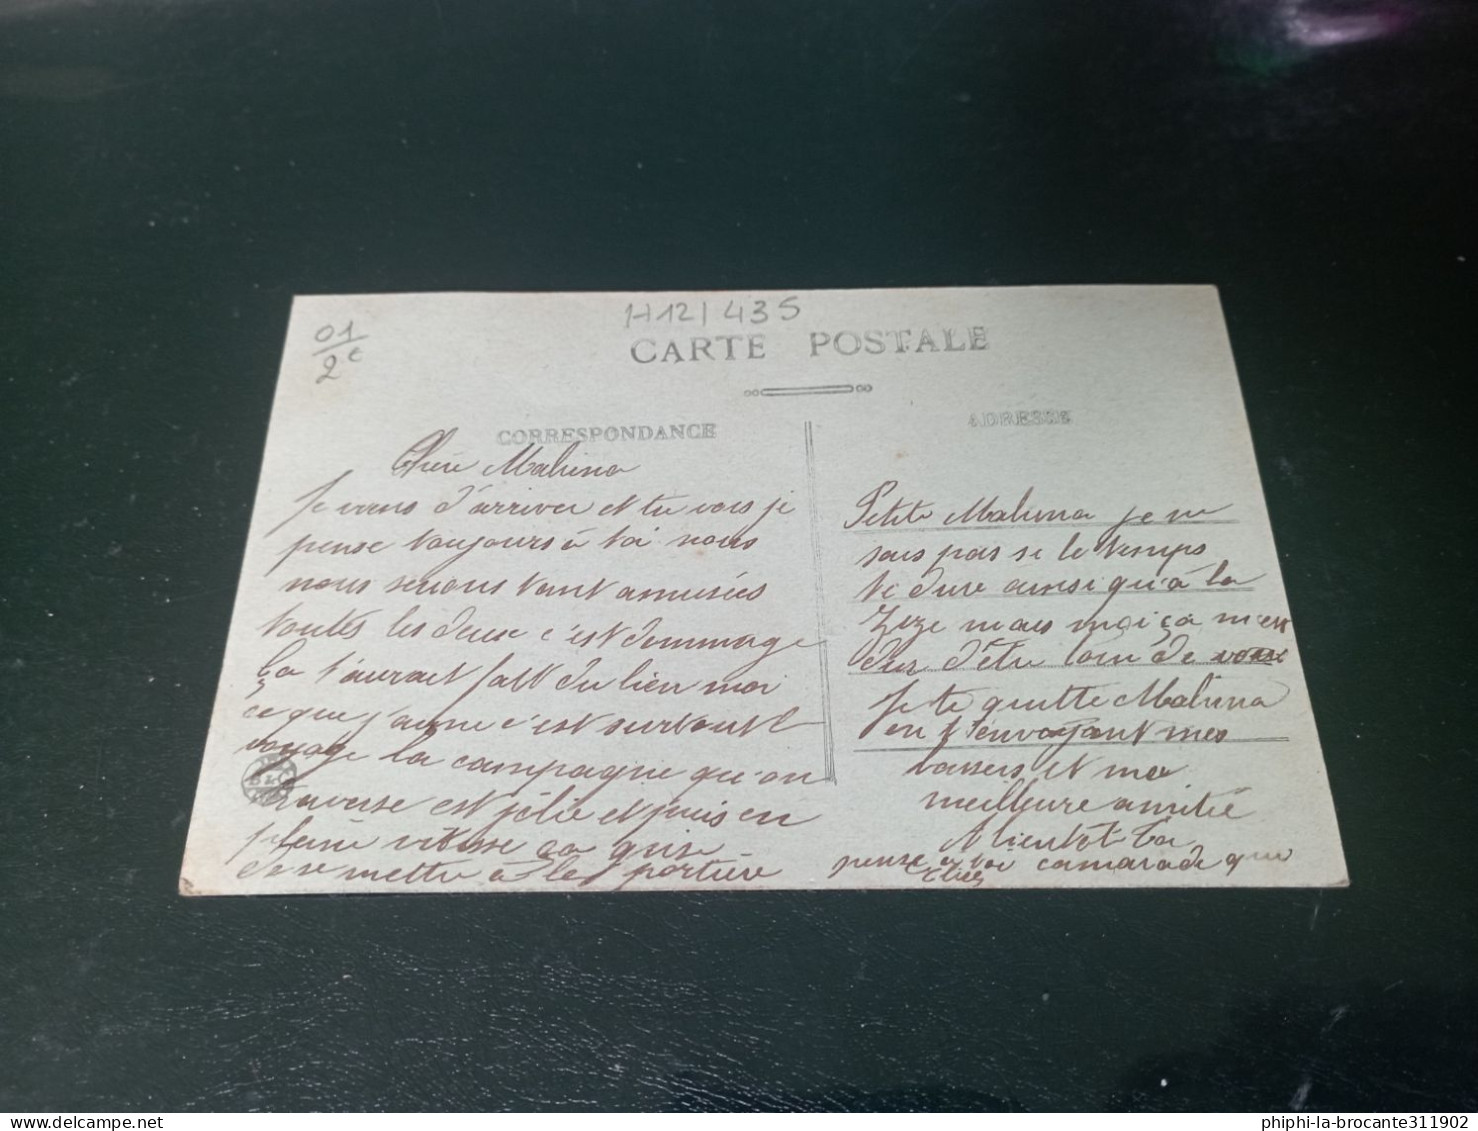 H12/435
01
2€
CARTE POSTALE
CORRESPONDANCE
ADRESSE
Chère Malvina
Je viens d'arriver et tu vois je
pense toujours à toi nous
nous serions tant amusées
toutes les deux c'est dommage
ça t'aurait fait du bien moi
ce que j'aime c'est surtout l
voyage la campagne qu'on
traverse est jolie et puis en
pleine vitesse
de se mettre à la portière
Petite Malvina je ne
sais pas si le temps
te dure ainsi qu'à la
Zizi mais moi ça m'est
dur d'être loin de vous
Je te quitte Malvina
en t'envoyant mes
baisers et ma
meilleure amitié
A bientôt ta
pense à toi camarade que
phiphi-la-brocante311902